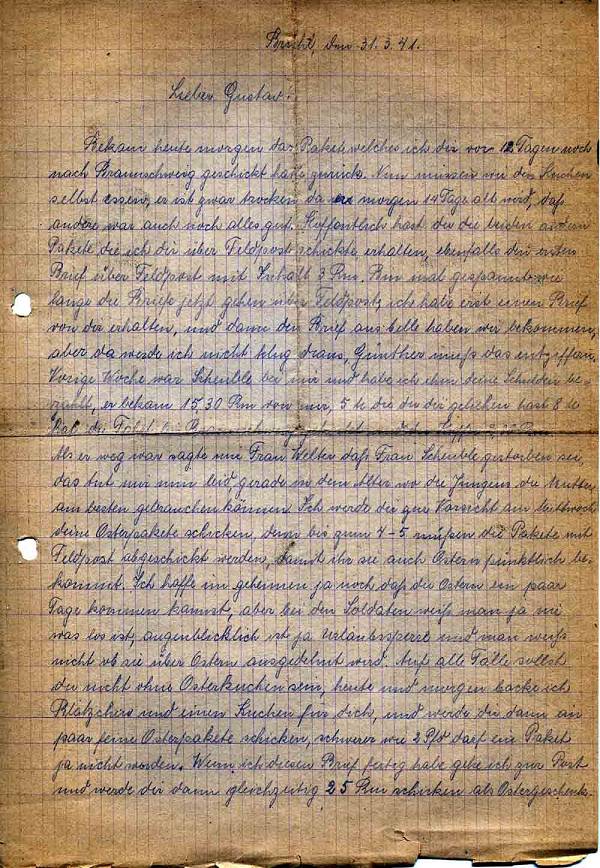 den 31.3.41.
Lieber Gustav!
Bekam heute morgen das Paket welches ich dir vor 12 Tagen noch
nach Braunschweig geschickt hatte zurück. Nun müssen wir den Kuchen
selbst essen, er ist zwar trocken da er morgen 14 Tage alt wird, das
andere war auch noch alles gut. Hoffentlich hast du die beiden andern
Pakete die ich dir über Feldpost schickte erhalten, ebenfalls den ersten
Brief über Feldpost mit Inhalt 3 Rm. Bin mal gespannt wie
lange die Briefe jetzt gehen über Feldpost, ich habe erst einen Brief
von dir erhalten, und dann den Brief aus Celle haben wir bekommen,
aber da werde ich nicht klug draus, Günther muß das entziffern.
Vorige Woche war Scheuble bei mir und habe ich ihm deine Schulden be-
zahlt, er bekam 15,30 Rm von mir, 5 die du dir geliehen hast 8
die
Als er weg war sagte mir Frau Welter daß Frau Scheuble gestorben sei,
das tut mir nun leid gerade in dem Alter wo die Jungens die Mutter
am besten gebrauchen können. Ich werde dir zur Vorsicht am Mittwoch
deine Osterpakete schicken, denn bis zum 4-5. müßen die Pakete mit
Feldpost abgeschickt werden, damit ihr sie auch Ostern pünktlich be-
kommt. Ich hoffe im geheimen ja noch daß du Ostern ein paar
Tage kommen kannst, aber bei den Soldaten weiß man ja nie
was los ist, augenblicklich ist ja Urlaubssperre und man weiß
nicht ob sie über Ostern ausgedehnt wird. Auf alle Fälle sollst
du nicht ohne Osterkuchen sein, heute und morgen backe ich
Plätzchers und einen Kuchen für dich, und werde dir dann ein
paar feine Osterpakete schicken, schwerer wie 2 Pfd darf ein Paket
ja nicht werden. Wenn ich diesen Brief fertig habe gehe ich zur Post
und werde dir dann gleichzeitig 25 Rm schicken als Ostergeschenk.